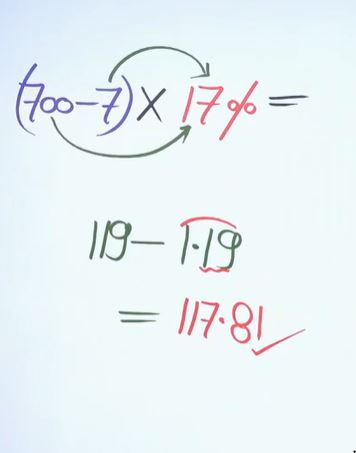 (700-7) × 17% =
119 - 1.19
= 117.81 ✓